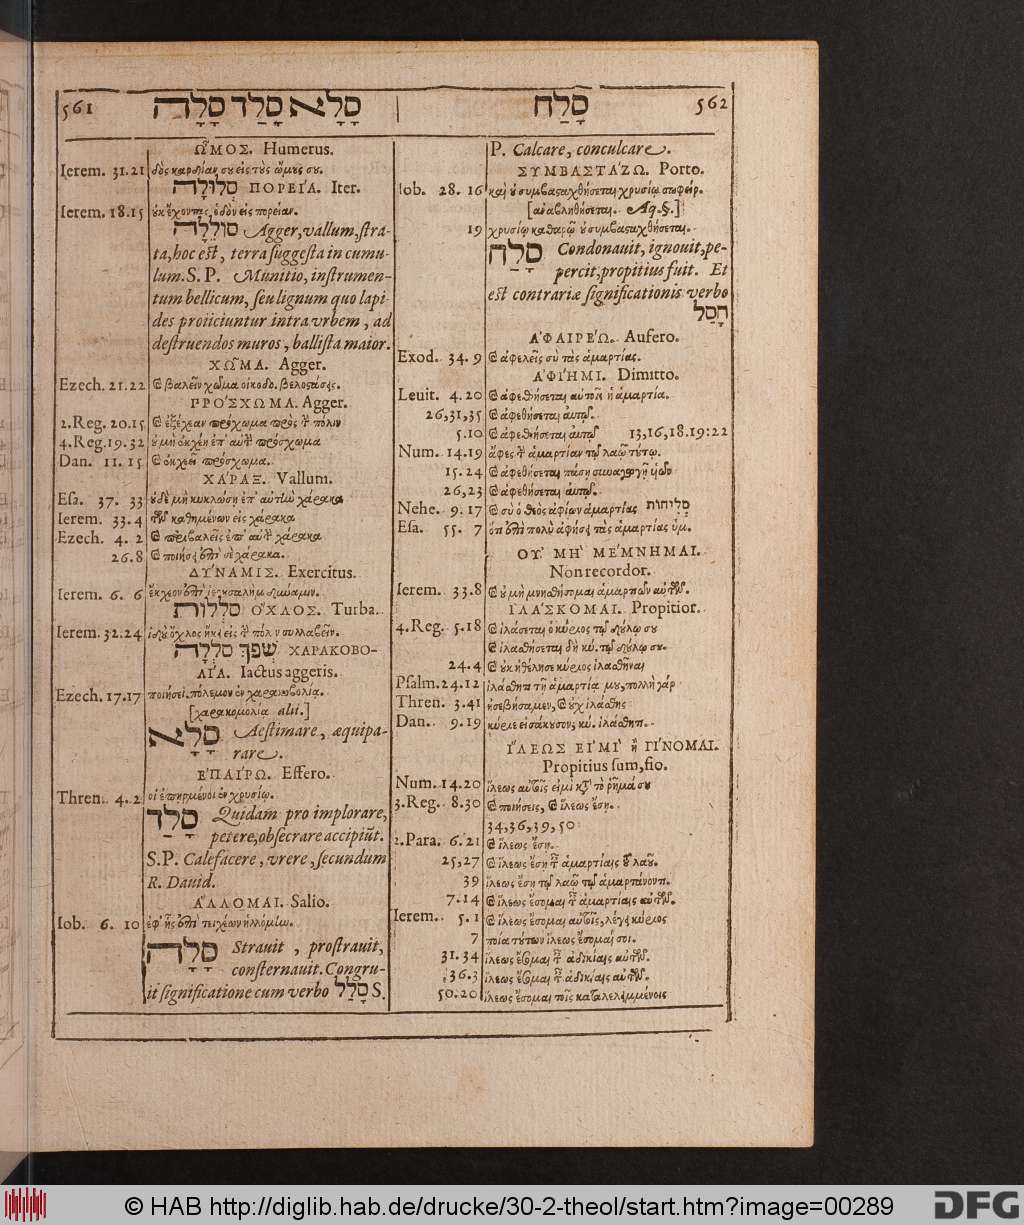 561 סָלָא סָלַד סָלָה
ὮΜΟΣ. Humerus.
Ierem. 31.21 δὸς καρδίαν σου εἰς τοὺς ὤμους σου.
סְלוּלָה ΠΟΡΕΊΑ. Iter.
Ierem. 18.15 οὐκ ἔχοντας ὁδὸν εἰς πορείαν.
סוֹלֲלָה Agger, vallum, ſtra-
ta, hoc eſt, terra ſuggeſta in cumu-
lum. S. P. Munitio, inſtrumen-
tum bellicum, ſeu lignum quo lapi-
des proiiciuntur intra vrbem, ad
deſtruendos muros, balliſta maior.
ΧΩ͂ΜΑ. Agger.
Ezech. 21.22 καὶ βαλεῖν χῶμα οἰκοδ. βελοστάσεις.
ΠΡΌΣΧΩΜΑ. Agger.
2.Reg. 20.15 καὶ ἐξέχεαν πρόσχωμα πρὸς τὴν πόλιν
4.Reg. 19.32 οὐ μὴ ἐκχέῃ ἐπ' αὐτὴν πρόσχωμα
Dan. 11.15 καὶ ἐκχεεῖ πρόσχωμα.
ΧΆΡΑΞ. Vallum.
Eſa. 37. 33 οὐδὲ μὴ κυκλώσῃ ἐπ' αὐτὴν χάρακα
Ierem. 33.4 τῶν καθημένων εἰς χάρακα
Ezech. 4. 2 καὶ περιβαλεῖς ἐπ' αὐτὴν χάρακα
26.8 καὶ ποιήσει ἐπὶ σὲ χάρακα.
ΔΎΝΑΜΙΣ. Exercitus.
Ierem. 6. 6 ἔκχεον ἐπὶ ἱερουσαλὴμ δύναμιν.
סֹלְלוֹת ὌΧΛΟΣ. Turba.
Ierem. 32.24 ἰδοὺ ὄχλος ἥκει εἰς τὴν πόλιν συλλαβεῖν.
שְׁפֹךְ סֹלְלָה ΧΑΡΑΚΟΒΟ-
ΛΊΑ. Iactus aggeris.
Ezech. 17.17 ποιήσει πόλεμον ἐν χαρακοβολίᾳ.
[χαρακομολία alii.]
סָלָא Aeſtimare, æquipa-
rare.
ἘΠΑΊΡΩ. Effero.
Thren. 4. 2 οἱ ἐπηρμένοι ἐν χρυσίῳ.
סָלַד Quidam pro implorare,
petere, obſecrare accipiũt.
S.P. Calefacere, vrere, ſecundum
R. Dauid.
ἍΛΛΟΜΑΙ. Salio.
Iob. 6. 10 ἐφ' ἧς ἐπὶ τειχέων ἡλλόμην.
סָלָה Strauit, proſtrauit,
conſternauit. Congru-
it ſignificatione cum verbo סָלַל S.
סָלַח 562
P. Calcare, conculcare.
ΣΥΜΒΑΣΤΆΖΩ. Porto.
Iob. 28. 16 καὶ οὐ συμβασταχθήσεται χρυσίῳ σωφείρ.
[ἀναβληθήσεται. Aq.§.]
19 χρυσίῳ καθαρῷ οὐ συμβασταχθήσεται.
סָלַח Condonauit, ignouit, pe-
percit, propitius fuit. Et
eſt contrariæ ſignificationis verbo
חָסַל
ἈΦΑΙΡΈΩ. Aufero.
Exod. 34. 9 καὶ ἀφελεῖς σὺ τὰς ἁμαρτίας.
ἈΦΊΗΜΙ. Dimitto.
Leuit. 4.20 καὶ ἀφεθήσεται αὐτοῖς ἡ ἁμαρτία.
26,31,35 καὶ ἀφεθήσεται αὐτῷ.
5.10 καὶ ἀφεθήσεται αὐτῷ 13,16,18.19:22
Num. 14.19 ἄφες τὴν ἁμαρτίαν τῷ λαῷ τούτῳ.
15.24 καὶ ἀφεθήσεται πάσῃ συναγωγῇ υἱῶν
26,23 καὶ ἀφεθήσεται αὐτῷ.
Nehe. 9.17 καὶ σὺ ὁ θεὸς ἀφίων ἁμαρτίας סְלִיחוֹת
Eſa. 55. 7 ὅτι ἐπὶ πολὺ ἀφήσει τὰς ἁμαρτίας ὑμ.
ΟΥ' ΜῊ ΜΈΜΝΗΜΑΙ.
Non recordor.
Ierem. 33.8 καὶ οὐ μὴ μνησθήσομαι ἁμαρτιῶν αὐτῶν.
ἹΛΆΣΚΟΜΑΙ. Propitior.
4.Reg. 5.18 καὶ ἱλάσεται ὁ κύριος τῷ δούλῳ σου
καὶ ἱλασθήσεται δὴ κύ. τῷ δούλῳ σου.
24.4 καὶ οὐκ ἠθέλησε κύριος ἱλασθῆναι
Pſalm. 24.12 ἱλάσθητι τῇ ἁμαρτίᾳ μου, πολλὴ γάρ
Thren. 3.41 ἠσεβήσαμεν, καὶ οὐχ ἱλάσθης
Dan. 9.19 κύριε εἰσάκουσον, κύ. ἱλάσθητι.
ἽΛΕΩΣ ΕἸΜῚ ἢ ΓΊΝΟΜΑΙ.
Propitius ſum, fio.
Num. 14.20 ἵλεως αὐτοῖς εἰμὶ κατὰ τὸ ῥῆμά σου
3.Reg. 8.30 καὶ ποιήσεις, καὶ ἵλεως ἔσῃ.
34,36,39,50
2.Para. 6.21 καὶ ἵλεως ἔσῃ.
25,27 καὶ ἵλεως ἔσῃ ταῖς ἁμαρτίαις τοῦ λαοῦ.
39 ἵλεως ἔσῃ τῷ λαῷ τῷ ἁμαρτάνοντι.
7.14 καὶ ἵλεως ἔσομαι ταῖς ἁμαρτίαις αὐτῶν.
Ierem. 5.1 καὶ ἵλεως ἔσομαι αὐτοῖς, λέγει κύριος
7 ποίᾳ τούτων ἵλεως ἔσομαί σοι.
31.34 ἵλεως ἔσομαι ταῖς ἀδικίαις αὐτῶν.
36.3 ἵλεως ἔσομαι ταῖς ἀδικίαις αὐτῶν.
50.20 ἵλεως ἔσομαι τοῖς καταλελειμμένοις
© HAB http://diglib.hab.de/drucke/30-2-theol/start.htm?image=00289
DFG